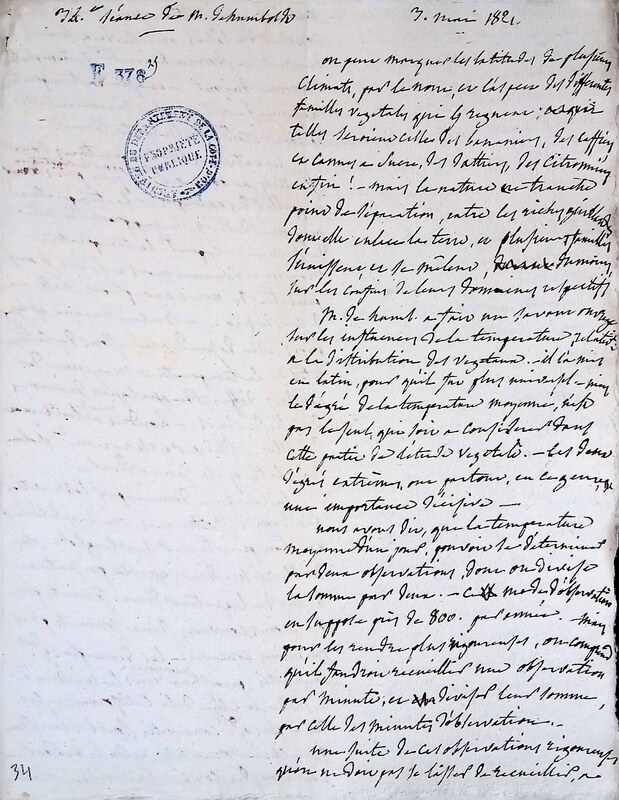 séance de M. de humboldt
3. mai 1821.
F 378
25
ARCHIVES DU DEPARTEMENT DE LA COTE-D'OR
PROPRIÉTÉ PUBLIQUE
on peut marquer les latitudes de plusieurs
climats, par le nombre et l'espece des differentes
familles vegetales qui y regnent;
telles seroient celles des bananiers, des caffiers,
en cannes a sucre, des dattiers, des citronniers
enfin! - mais la nature ne tranche
point de séparation, entre les riches
dont elle enlace la terre, et plusieurs familles
s'unissent et se mêlent, du moins,
sur les confins de leurs domaines respectifs
M. de humb. a fait un savant ouvrage
sur les influences de la temperature, relativ.t
a la distribution des vegetaux. - il l'a mis
en latin, pour qu'il fut plus universel - mais
le dégré de la temperature moyenne, n'est
pas le seul, que soit a considerer dans
cette partie de l'etude vegetale. - Les deux
dégrés extrêmes, ont partout, en ce genre,
une importance décisive -
nous avons dit, que la temperature
moyenne d'un jour, pouvoit se déterminer
par deux observations, dont on divise
la somme par deux. - ce mode d'observation
en suppose près de 800. par année. - mais
pour les rendre plus rigoureuses, on comprend
qu'il faudroit recueillir une observation
par minute, et diviser leur somme,
par celle des minutes d'observation. -
une suite de ces observations rigoureuses
qu'on ne doit pas se lasser de recueillir,
34